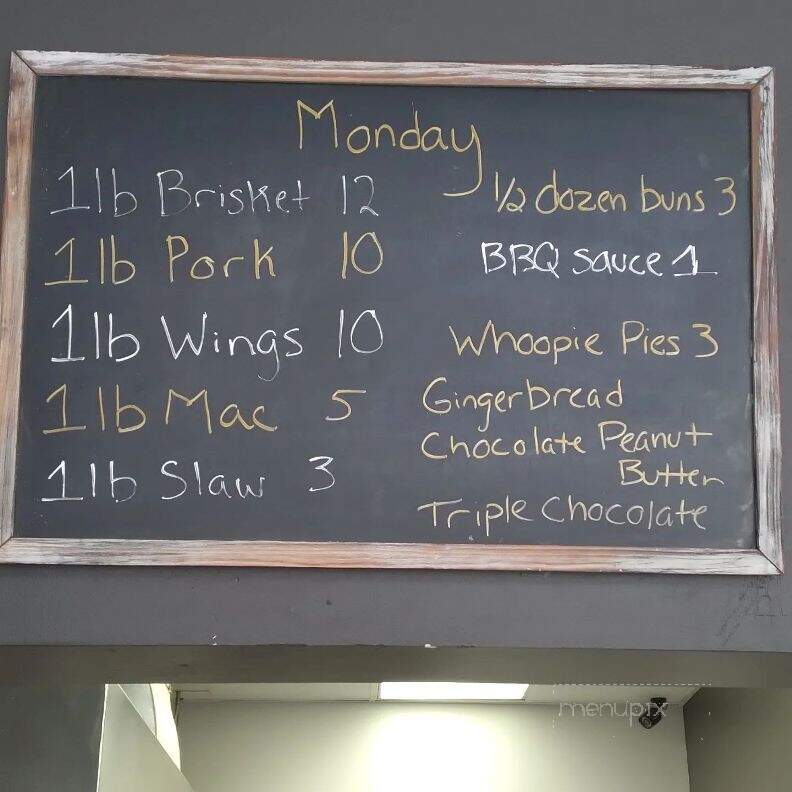 Monday
1lb Brisket 12
1lb Pork 10
1lb Wings 10
1lb Mac 5
1lb Slaw 3
1/2 dozen buns 3
BBQ sauce 1
Whoopie Pies 3
Gingerbread
Chocolate Peanut
Butter
Triple Chocolate
menupix